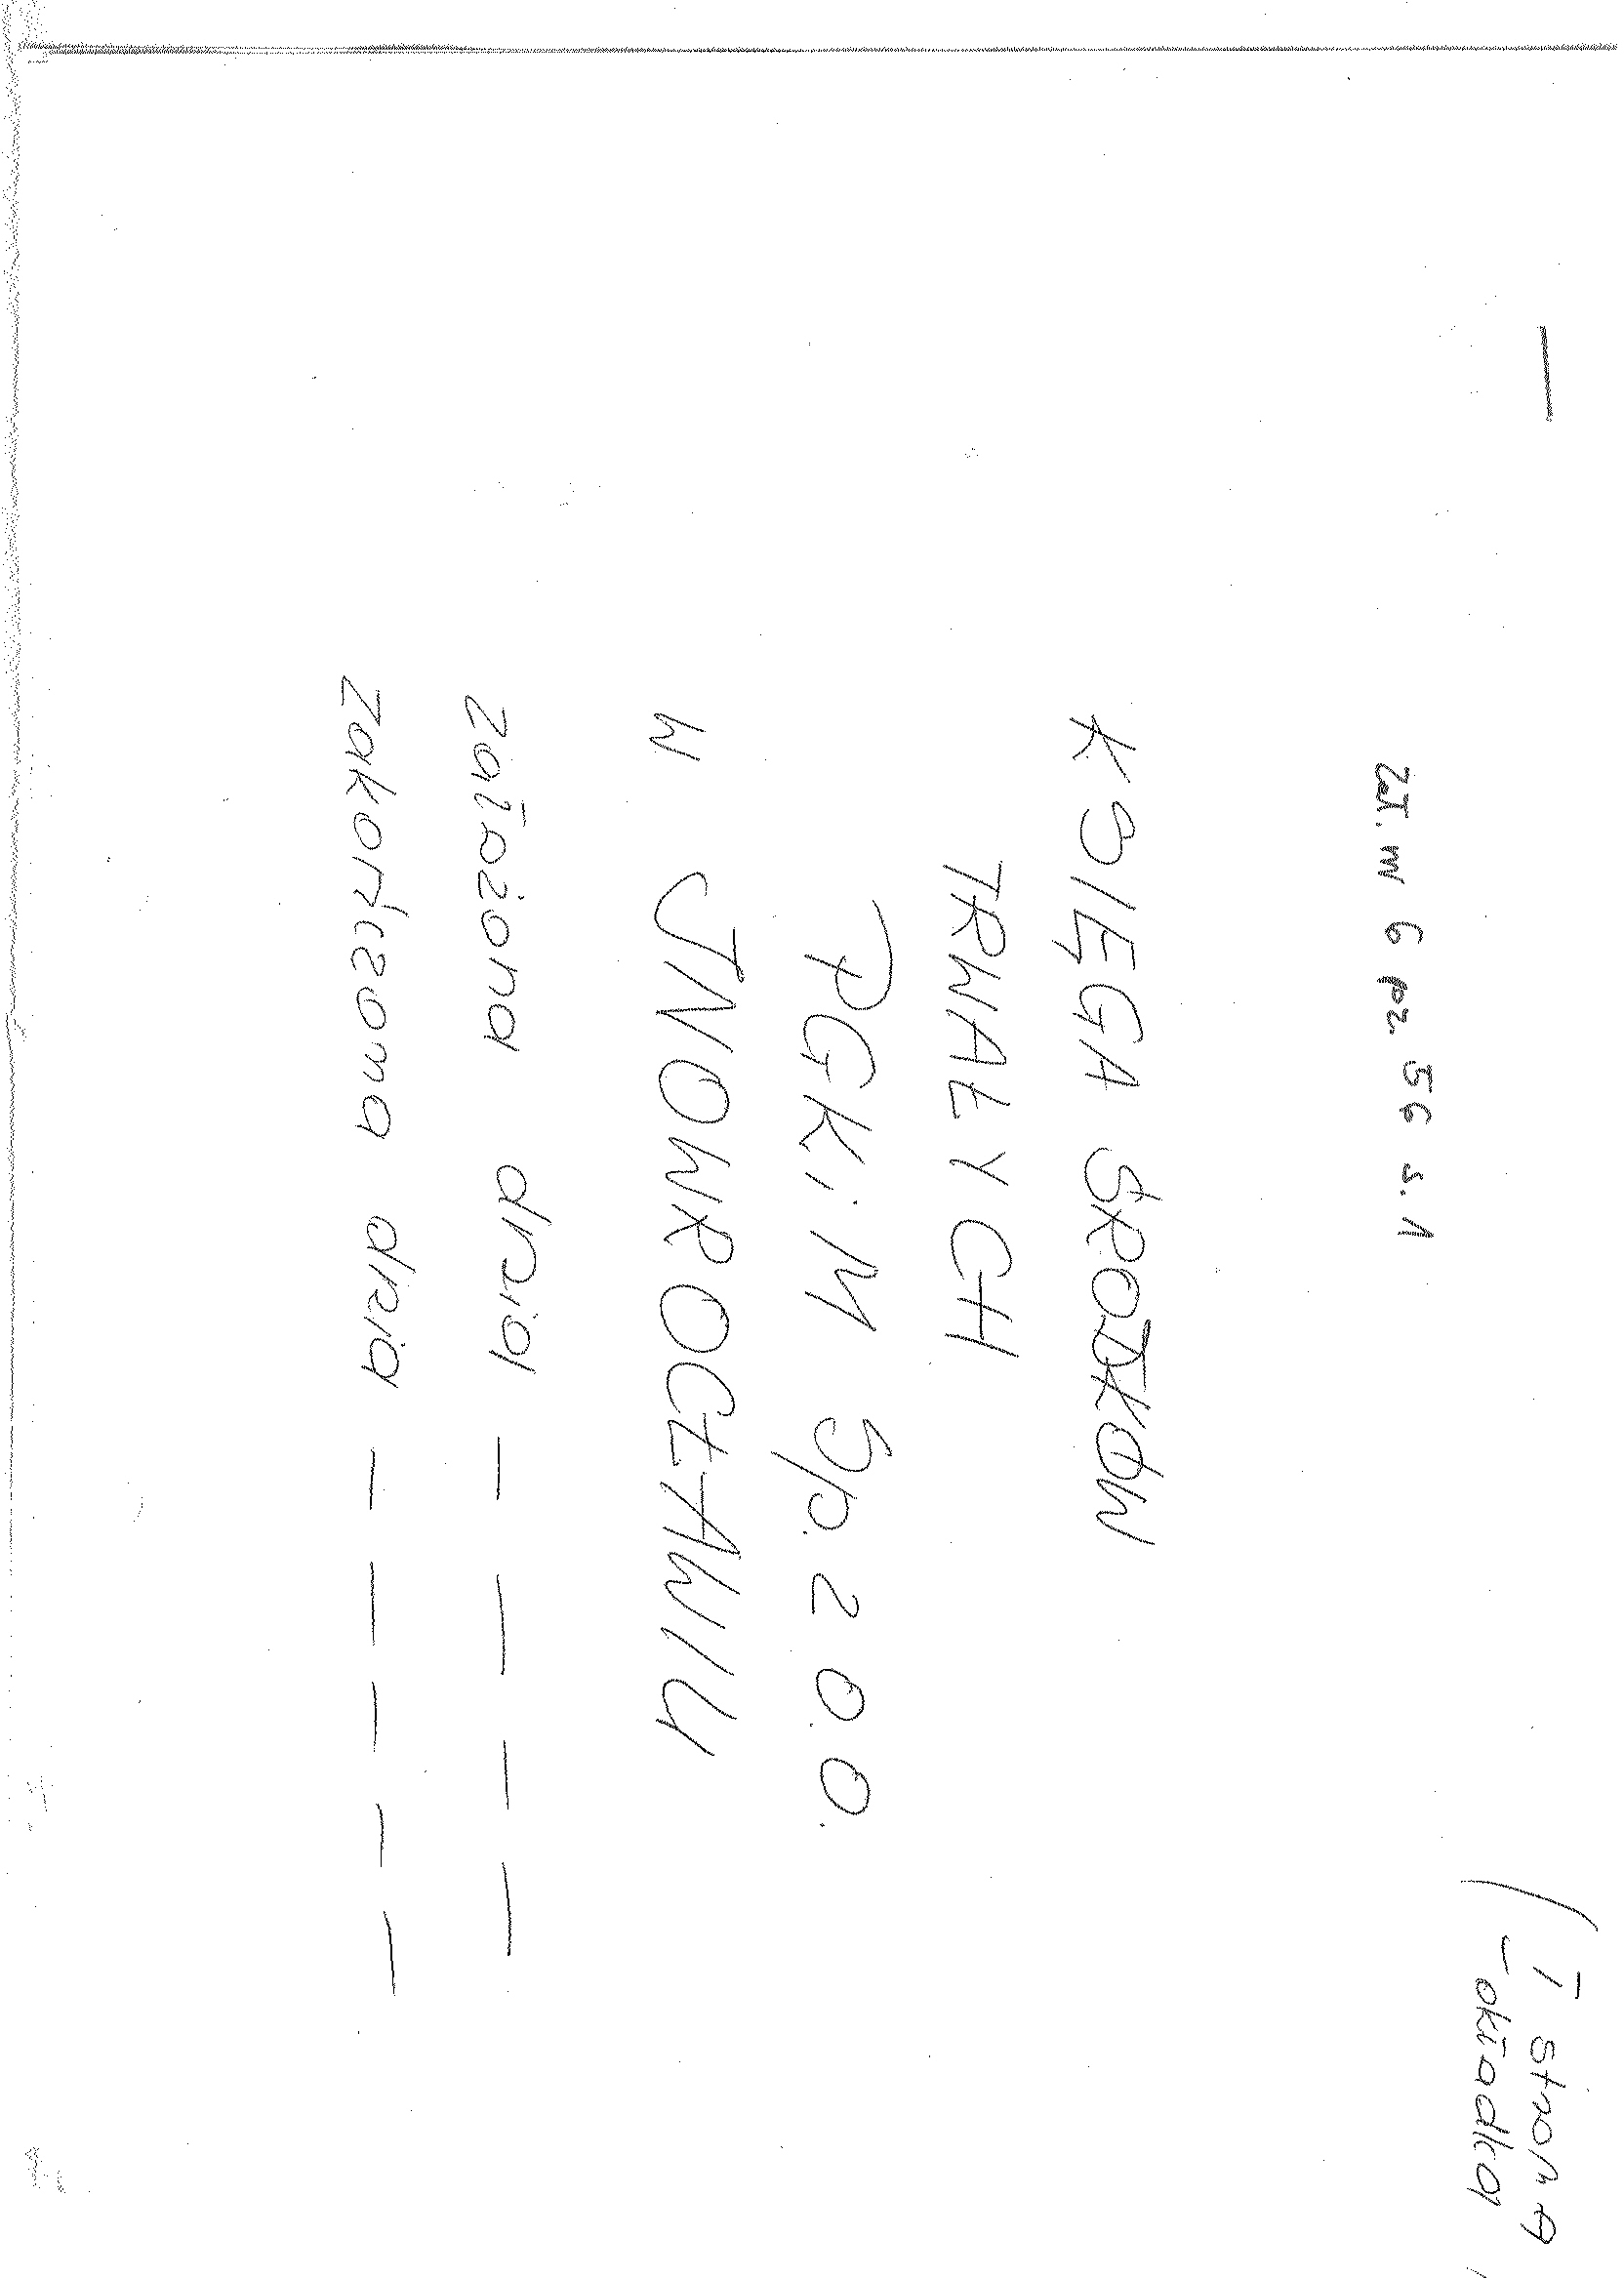 I strona
- okładka
Zał. nr 6 poz. 56 s. 1
KSIĘGA ŚRODKÓW
TRWAŁYCH
PGKiM Sp. z o. o.
w INOWROCŁAWIU
założona dnia - - - -
zakończona dnia - - - - -